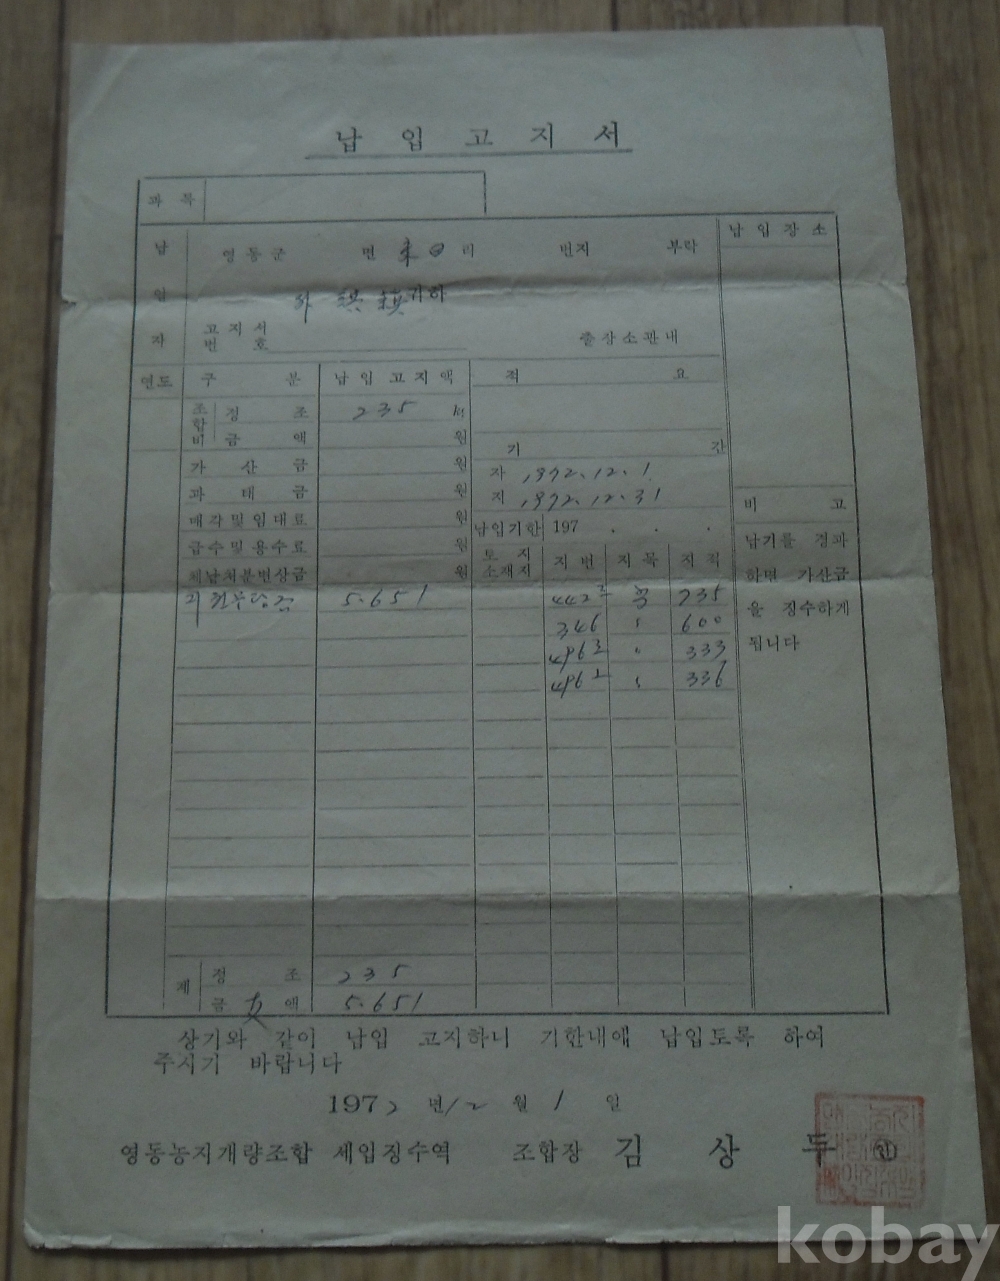 납 입 고 지 서
과 목
납 입 자
영동군 면 리 번지 부락
귀하
고지서 번호
출장소관내
납 입 장 소
연도 구 분 납 입 고 지 액 적 요
조합비 정 조 235 kg
금 액 원
기 간
가 산 금 원
자 1972.12.1
과 태 금 원
지 1972.12.31
매각및임대료 원
납입기한 197 . . .
급수및용수료 원
토 지 소재지 지 번 지 목 지 적
체납처분변상금 원
비 고
납기를 경과
하면 가산금
을 징수하게
됩니다
5.651
442 235
346 600
496 333
496 336
계 정 조 235
금 액 5.651
상기와 같이 납입 고지하니 기한내에 납입토록 하여
주시기 바랍니다
1972 년 12 월 1 일
영동농지개량조합 세입징수역 조합장 김 상 두 ㊞
kobay